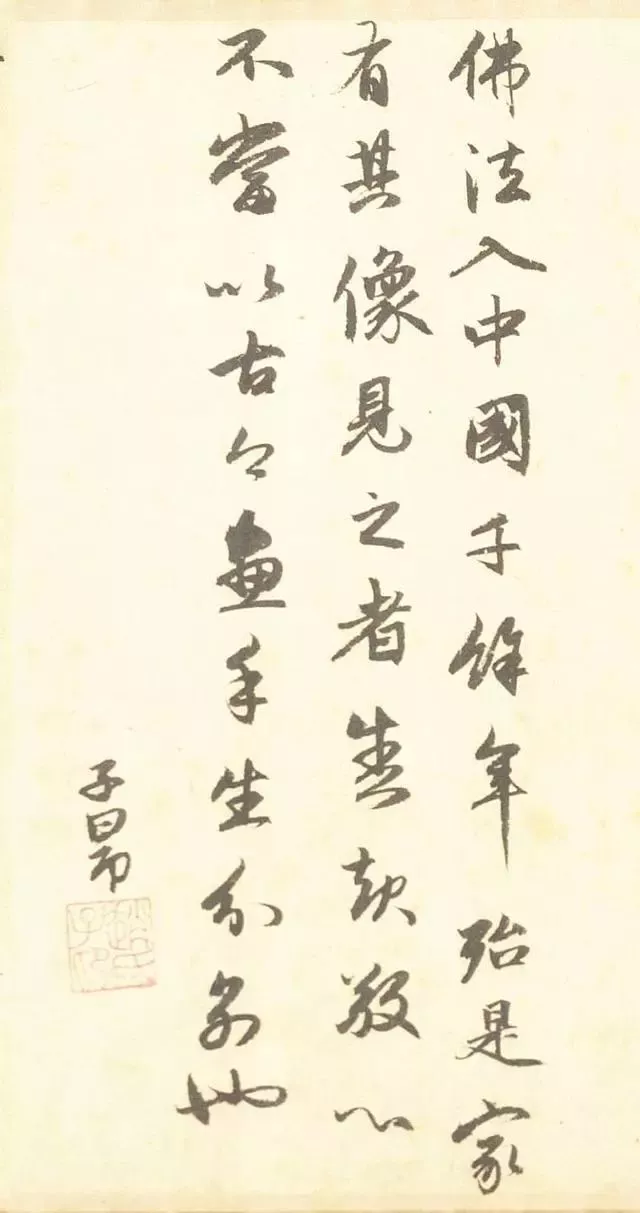 佛法入中國千餘年殆是家
有其像見之者起敬心
不當以古今畫手生分別也
子昂
趙氏子昂